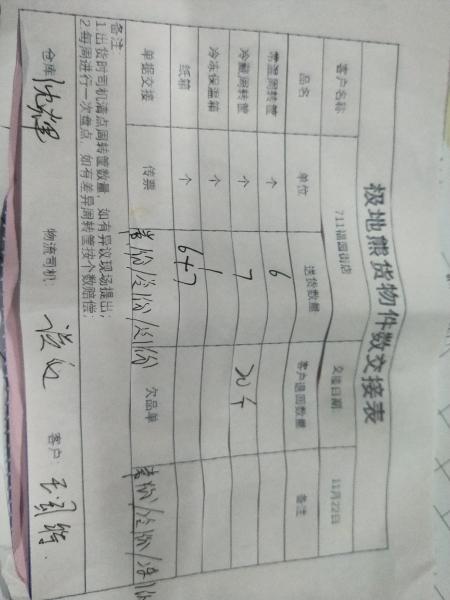 极地熊货物件数交接表
客户名称 711福园街店 交接日期 11月22日
品名 单位 送货数量 客户退回数量 备注
常温周转筐 个 6
冷藏周转筐 个 7 20个
冷冻保温箱 个 1
纸箱 个 6+7
单据交接 传票 欠品单
备注
1.出货时司机清点周转筐数量,如有异议现场提出;
2.每周进行一次盘点,如有差异周转筐按个数赔偿;
仓库: 物流司机: 客户: